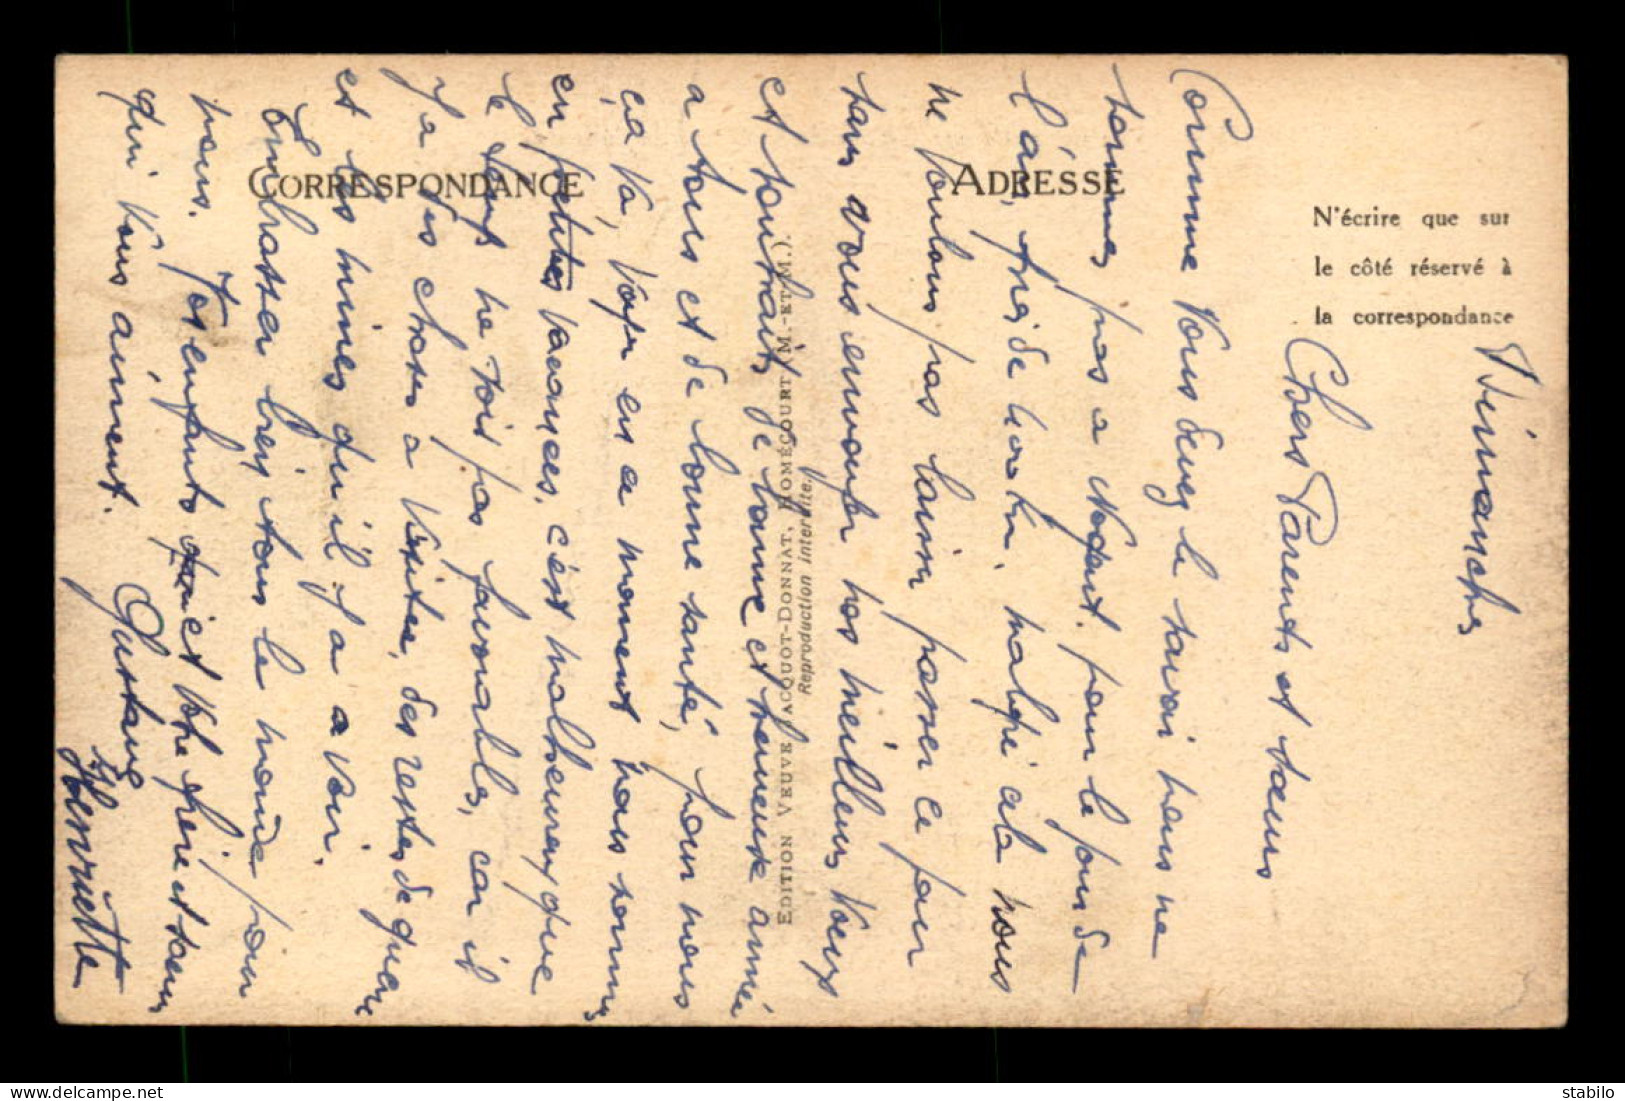 CORRESPONDANCE
ADRESSE
N'écrire que sur
le côté réservé à
la correspondance
EDITION VEUVE JACQUOT-DONNAT, HOMÉCOURT (M.-ET-M.).
Reproduction interdite.
Dimanche
Chers Parents et sœurs
Comme vous devez le savoir nous ne
sommes pas a Nogent. pour le jour de
l'an, froide hostri. malgré cela nous
ne voulons pas laisser passer ce jour
sans vous envoyer nos meilleurs vœux
et souhaits de bonne et heureuse année
a tous et de bonne santé, pour nous
ça va, Voyez en a moment nous sommes
en petites vacances, c'est malheureux que
le temps ne soit pas favorable, car il
y a des choses a visiter, des restes de guerre
et les mines qu'il y a a voir.
Embrasser bien tous le monde pour
nous. Vos enfants et votre frère et sœur
qui vous aiment.
Gustave
Henriette
stabilo